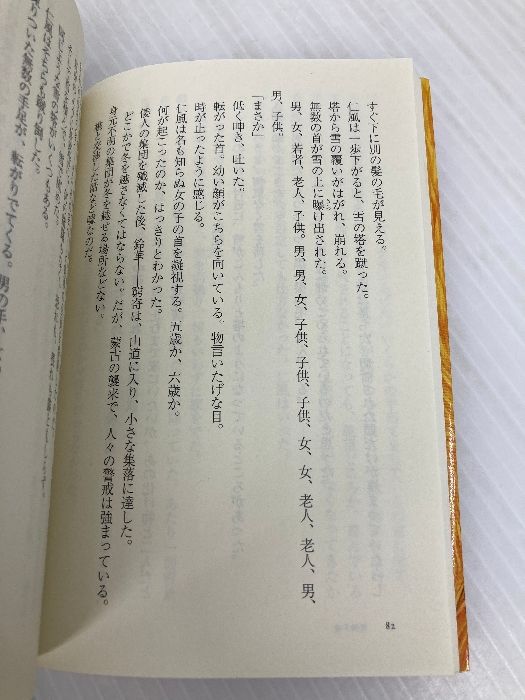 すぐ下に別の髪の毛が見える。
仁風は一歩下がると、雪の塔を蹴った。
塔から雪の覆いがはがれ、崩れる。
無数の首が雪の上に曝け出された。
男、女、若者、老人、子供。男、男、女、子供、子供、女、女、老人、老人、男、
男、子供。
「まさか」
低く呻き、吐いた。
転がった首。幼い顔がこちらを向いている。物言いたげな目。
時が止ったように感じる。
仁風は名も知らぬ女の子の首を凝視する。五歳か、六歳か。
何が起こったのか、はっきりとわかった。
倭人の集団を殲滅した後、鈴華
は、山道に入り、小さな集落に達した。
どこかで冬を越さなくてはならない。だが、蒙古の襲来で、人々の警戒は強まっている。
身元不明の集団が冬を越せる場所などない。
82
仁風はそちらも蹴り倒した。
りついた無数の手足が、転がりでてくる。男の手、